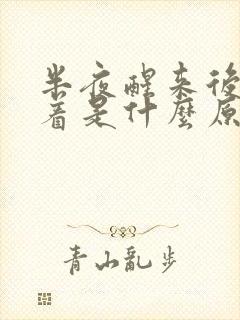 半夜醒来後
着是什麼原
青山亂步